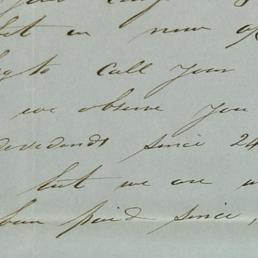 but on now
to call your
we observe you
dividends since 24
but we are
been paid since,